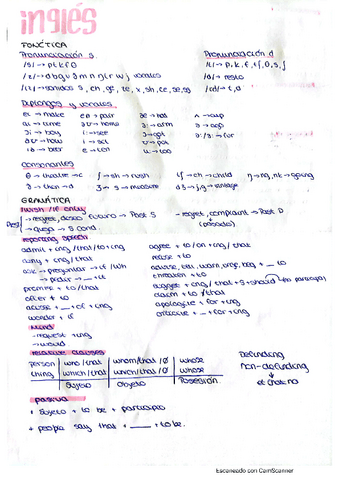 inglés
FONÉTICA
Pronunciación s
/s/ → p t k f θ
/z/ → d b g v ð m n g l r w j vocales
/ɪz/ → sonidos s, ch, ge, x, sh, ce, se
Pronunciación d
/t/ → p, k, f, tʃ, θ, s, ʃ
/ə/ → resto
/ɪd/ → t, d
Diptongos y vocales
eɪ → make
aɪ → time
ɔɪ → boy
aʊ → how
eə → pair
əʊ → home
i: → see
ɪ → sit
e → ten
æ → hat
ɒ → got
ʊ → put
u: → too
ə → ago
ɔ: → for
Consonantes
θ → theatre → c
ð → then → d
ʃ → sh → rush
ʒ → s → measure
tʃ → ch → child
dʒ → j, g → vintage
ŋ → ng, nk → going
GRAMÁTICA
wish / if only
→ regret, deseo futuro → Past S
→ queja → S cond.
→ regret, complaint → Past P
(pasado)
reporting speech
admit + ing / that / to + ing
deny + ing / that
ask → preguntar → if / Wh
→ pedir → __ to
promise + to / that
offer + to
accuse + __ + of + ing
wonder + if
agree + to / on + ing / that
refuse + to
advise, tell, warn, order, beg + __ to
threaten + to
suggest + ing / that + S + should
claim + to / that
apologize + for + ing
criticise + __ + for + ing
Mind
→ request + ing
→ would
relative clauses
person who / that whom / that / Ø whose
thing which / that which / that / Ø whose
Sujeto Objeto Posesión
Defining
Non-defining
↳ that no
pasiva
+ Sujeto + to be + participio
+ people say that + __ + to be.
Escaneado con CamScanner